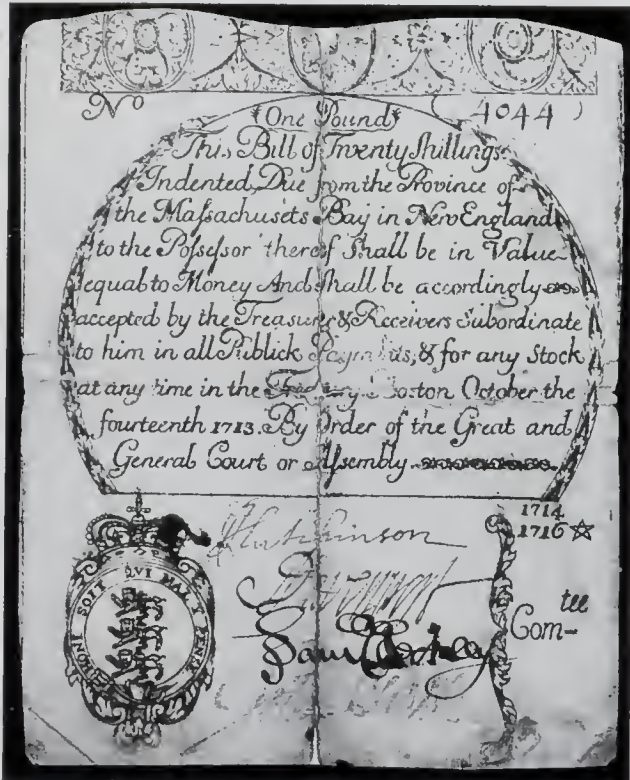 No 4044
One Pound
This Bill of Twenty Shillings
Indented Due from the Province of
the Massachusets Bay in New England
to the Possessor thereof Shall be in Value
equal to Money And Shall be accordingly
accepted by the Treasurer & Receivers Subordinate
to him in all Publick Payments, & for any Stock
at any time in the Treasury Boston October the
fourteenth 1713. By Order of the Great and
General Court or Assembly
1714
1716
Hutchinson
Com-tee
HONI SOIT QVI MAL Y PENSE
Sam